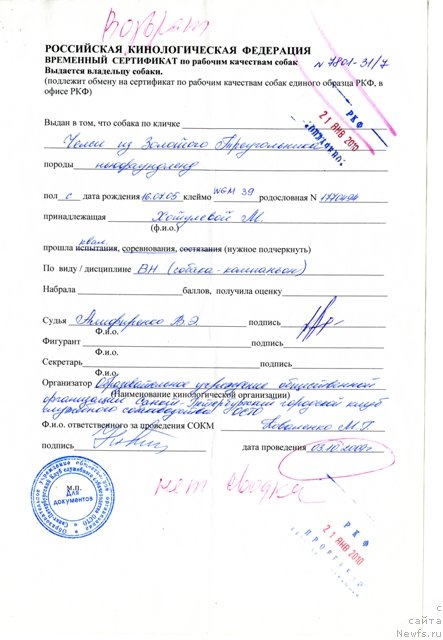 Возврат
РОССИЙСКАЯ КИНОЛОГИЧЕСКАЯ ФЕДЕРАЦИЯ
ВРЕМЕННЫЙ СЕРТИФИКАТ по рабочим качествам собак N 7801-31/7
Выдается владельцу собаки.
(подлежит обмену на сертификат по рабочим качествам собак единого образца РКФ, в
офисе РКФ)
РКФ
21 ЯНВ 2010
Выдан в том, что собака по кличке
Челси из Золотого Треугольника
породы ньюфаундленд
пол с дата рождения 16.07.05 клеймо WGM 39 родословная N 1770494
принадлежащая Хотулевой М.
(ф.и.о.)
квал.
прошла испытания, соревнования, состязания (нужное подчеркнуть)
По виду / дисциплине ВН (собака-компаньон)
Набрала баллов, получила оценку
Судья В.Э. подпись
Ф.и.о.
Фигурант подпись
Ф.и.о.
Секретарь подпись
Ф.и.о.
Организатор Образовательное учреждение общественной
(Наименование кинологической организации)
организации Санкт-Петербургский городской клуб
служебного собаководства РОСТО
Ф.и.о. ответственного за проведение СОКМ Коваленко М.Г.
подпись дата проведения 03.10.2009г
м.п.
Для
документов
нет сводки
РКФ
21 ЯНВ 2010
с
сайта
Newfs.ru